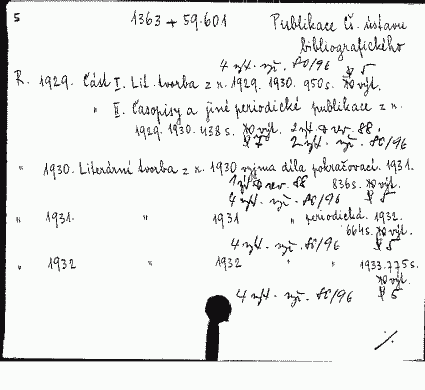 5 1363 + 59.601 Publikace čs. ústavu
bibliografického
4 výt. vyř. 80/96 § 5
R. 1929. Část I. Lit. tvorba z r. 1929. 1930. 950 s. výt.
" II. Časopisy a jiné periodické publikace z r.
1929. 1930. 438 s. výt. 2 výt. 88.
§ 7 2 výt. vyř. 80/96
" 1930. Literární tvorba z r. 1930 vyjma díla pokračovací. 1931.
1 výt. 88 836 s. výt.
4 výt. vyř. 80/96 § 5
" 1931. " 1931 " periodická. 1932.
664 s. výt.
4 výt. vyř. 80/96 § 5
" 1932 " 1932 " " 1933. 775 s.
výt.
4 výt. vyř. 80/96 § 5